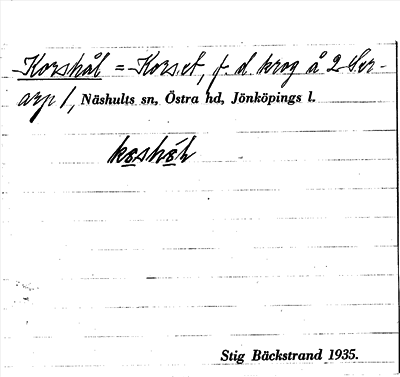 Korshål = Korset, f. d. krog å 2 Ser-
arp 1, Näshults sn, Östra hd, Jönköpings l.
Stig Bäckstrand 1935.